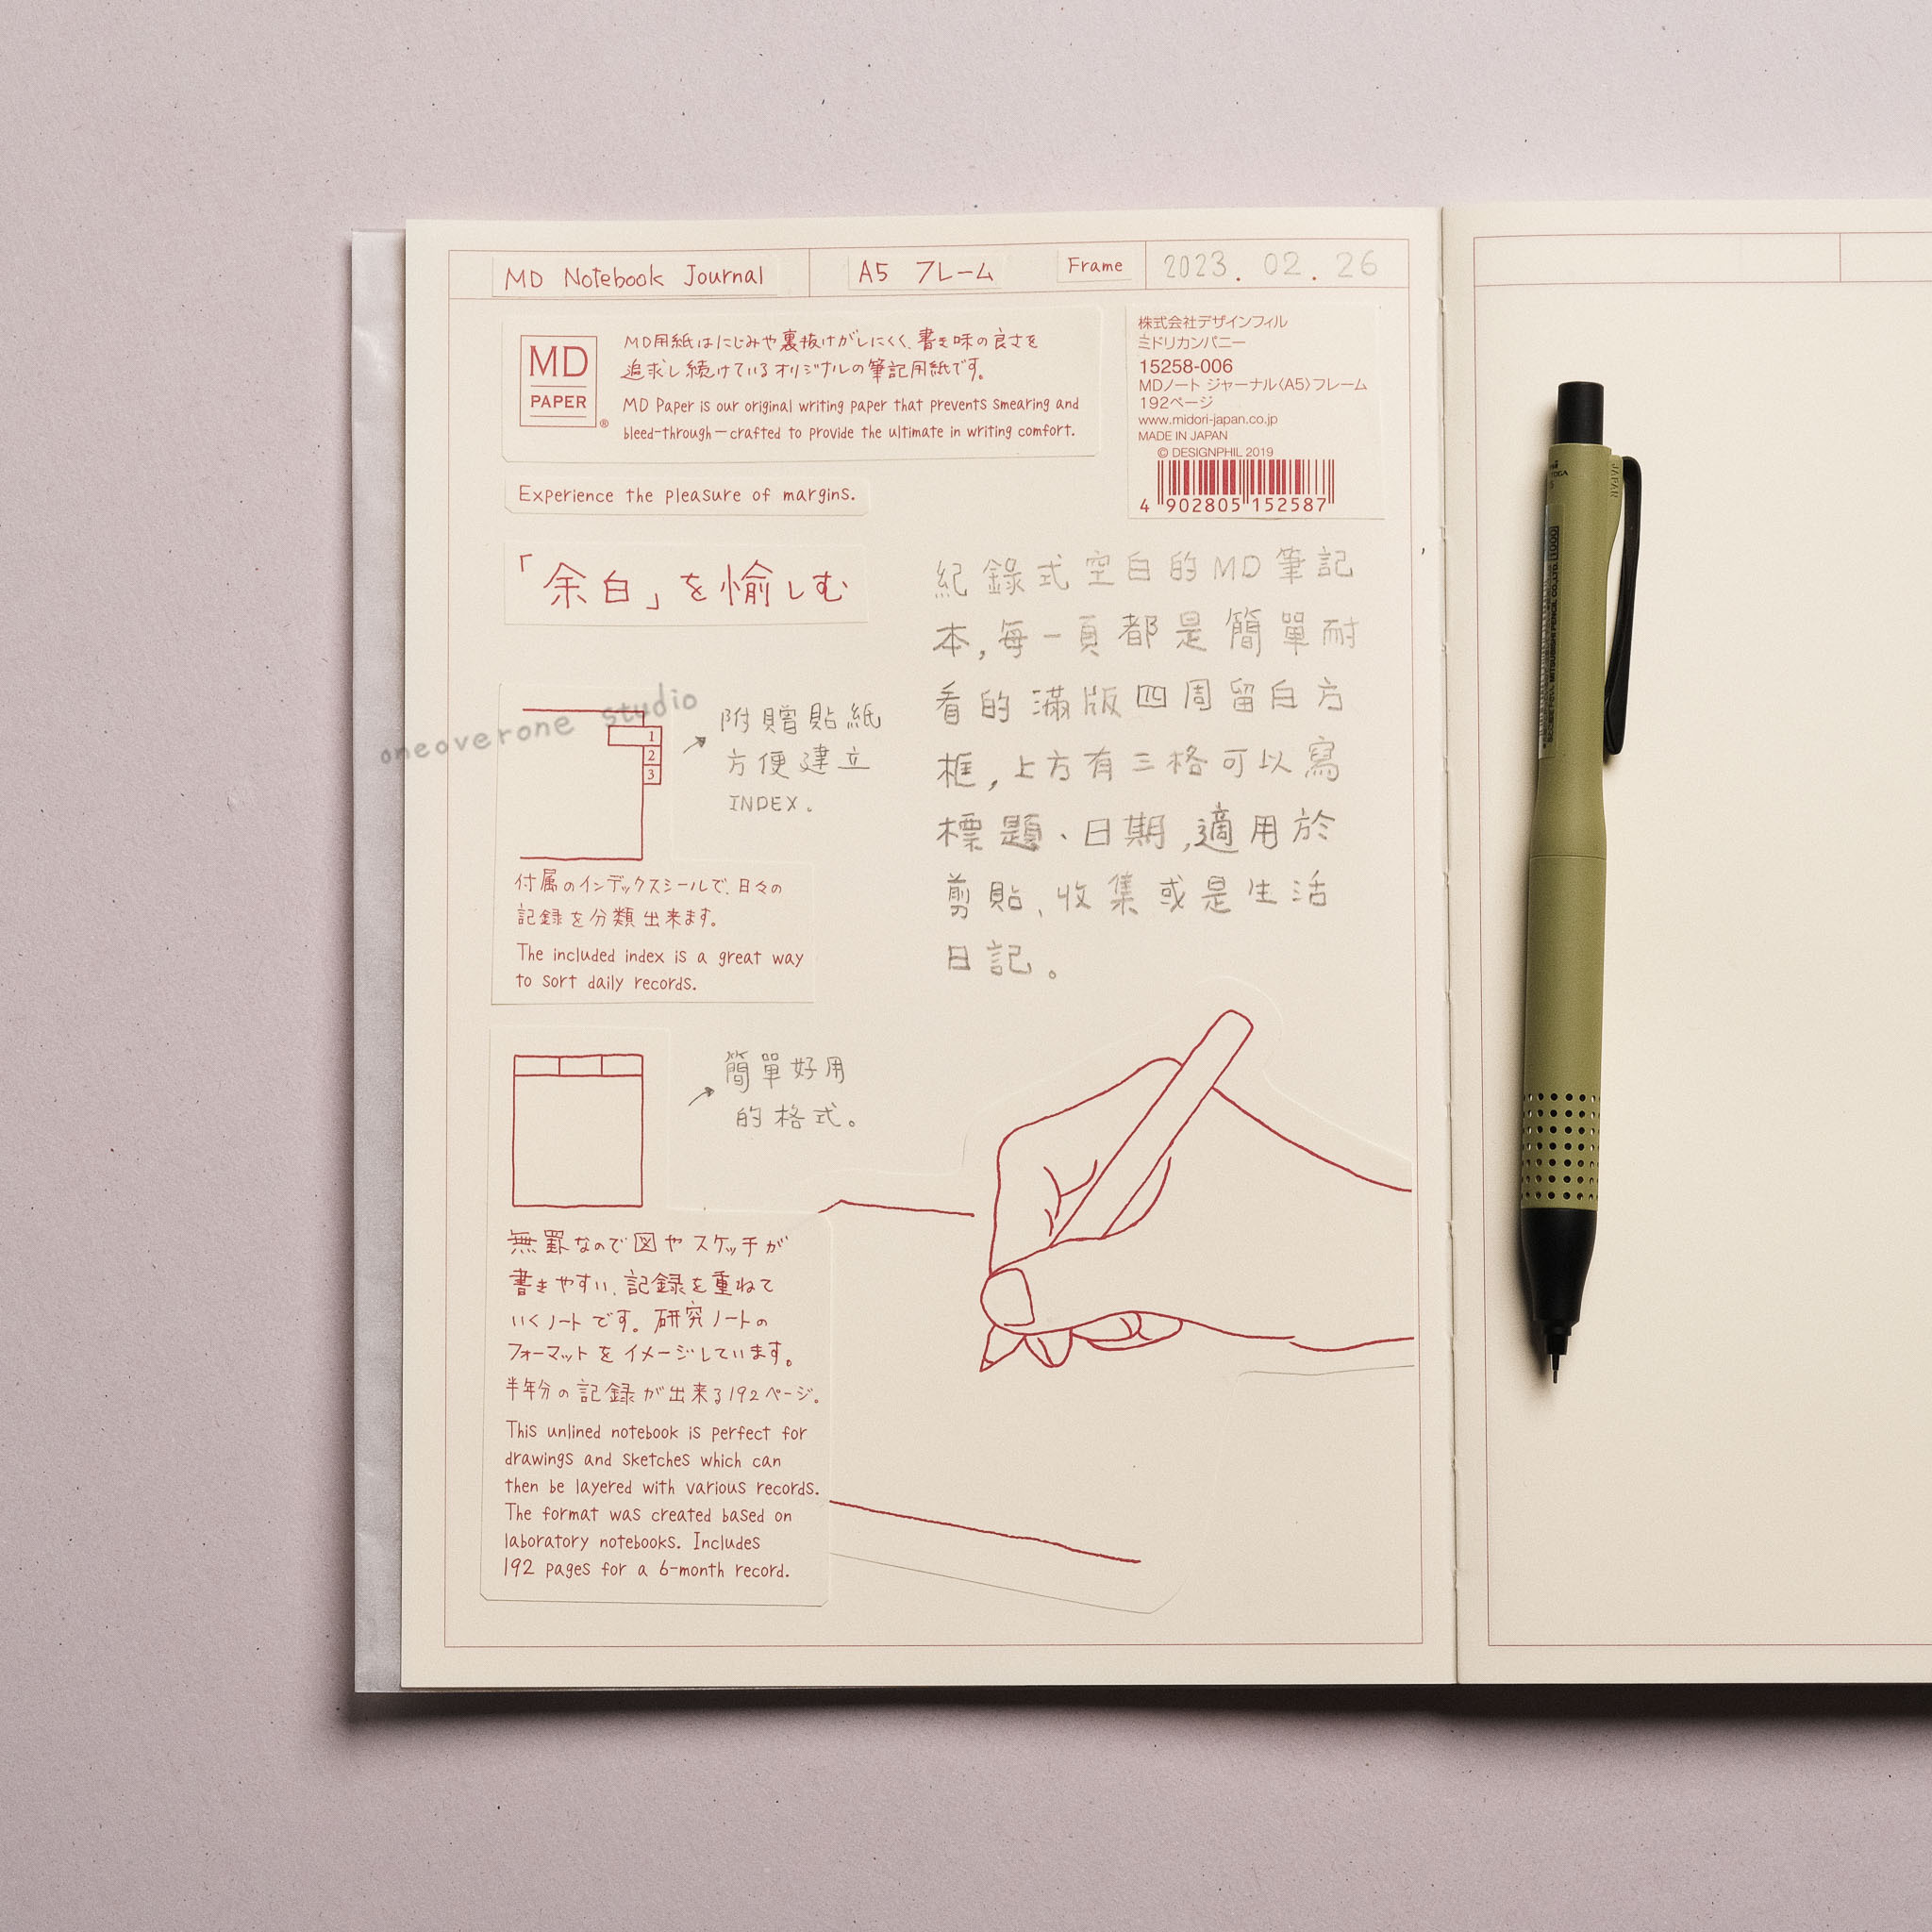 MD Notebook Journal
A5 フレーム
Frame
2023. 02. 26
MD
PAPER
®
MD用紙はにじみや裏抜けがしにくく、書き味の良さを
追求し続けているオリジナルの筆記用紙です。
MD Paper is our original writing paper that prevents smearing and
bleed-through—crafted to provide the ultimate in writing comfort.
株式会社デザインフィル
ミドリカンパニー
15258-006
MDノート ジャーナル〈A5〉フレーム
192ページ
www.midori-japan.co.jp
MADE IN JAPAN
© DESIGNPHIL 2019
4 902805 152587
Experience the pleasure of margins.
「余白」を愉しむ
紀錄式空白的MD筆記
本,每一頁都是簡單耐
看的滿版四周留白方
框,上方有三格可以寫
標題、日期,適用於
剪貼、收集或是生活
日記。
oneoverone studio
1
2
3
附贈貼紙
方便建立
INDEX.
付属のインデックスシールで、日々の
記録を分類出来ます。
The included index is a great way
to sort daily records.
簡單好用
的格式。
無罫なので図やスケッチが
書きやすい、記録を重ねて
いくノートです。研究ノートの
フォーマットをイメージしています。
半年分の記録が出来る192ページ。
This unlined notebook is perfect for
drawings and sketches which can
then be layered with various records.
The format was created based on
laboratory notebooks. Includes
192 pages for a 6-month record.
JAPAN